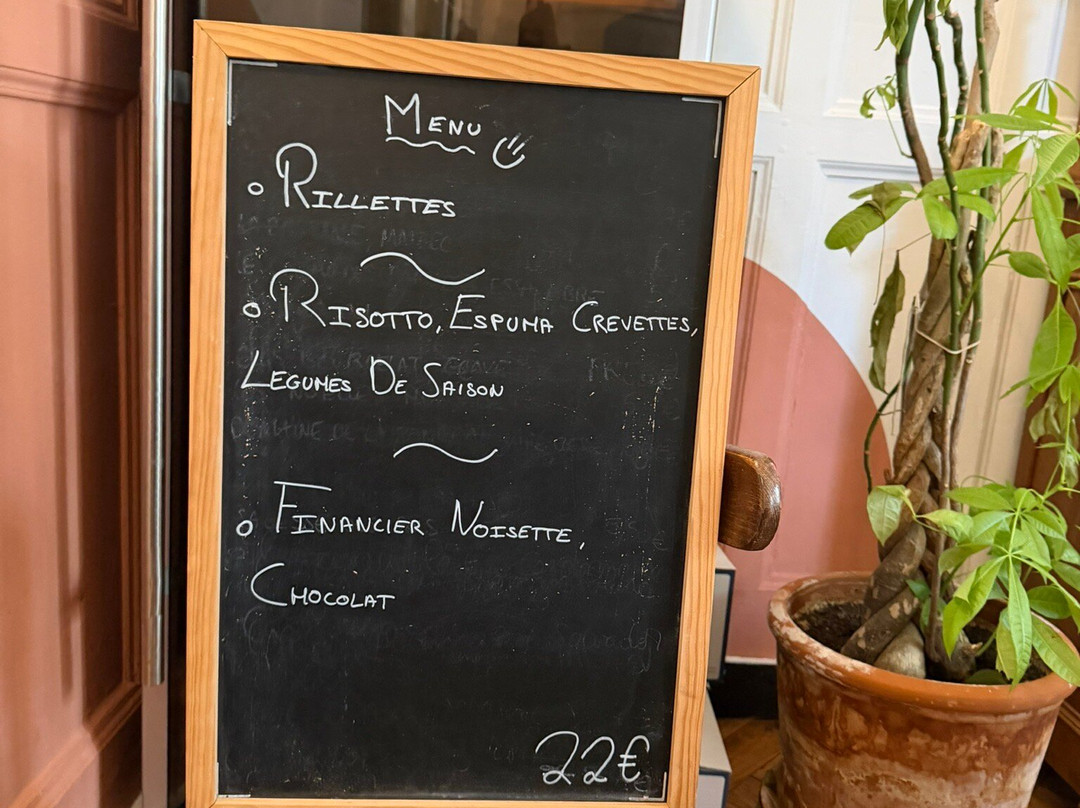 MENU
RILLETTES
RISOTTO, ESPUMA CREVETTES,
LEGUMES DE SAISON
FINANCIER NOISETTE,
CHOCOLAT
22€